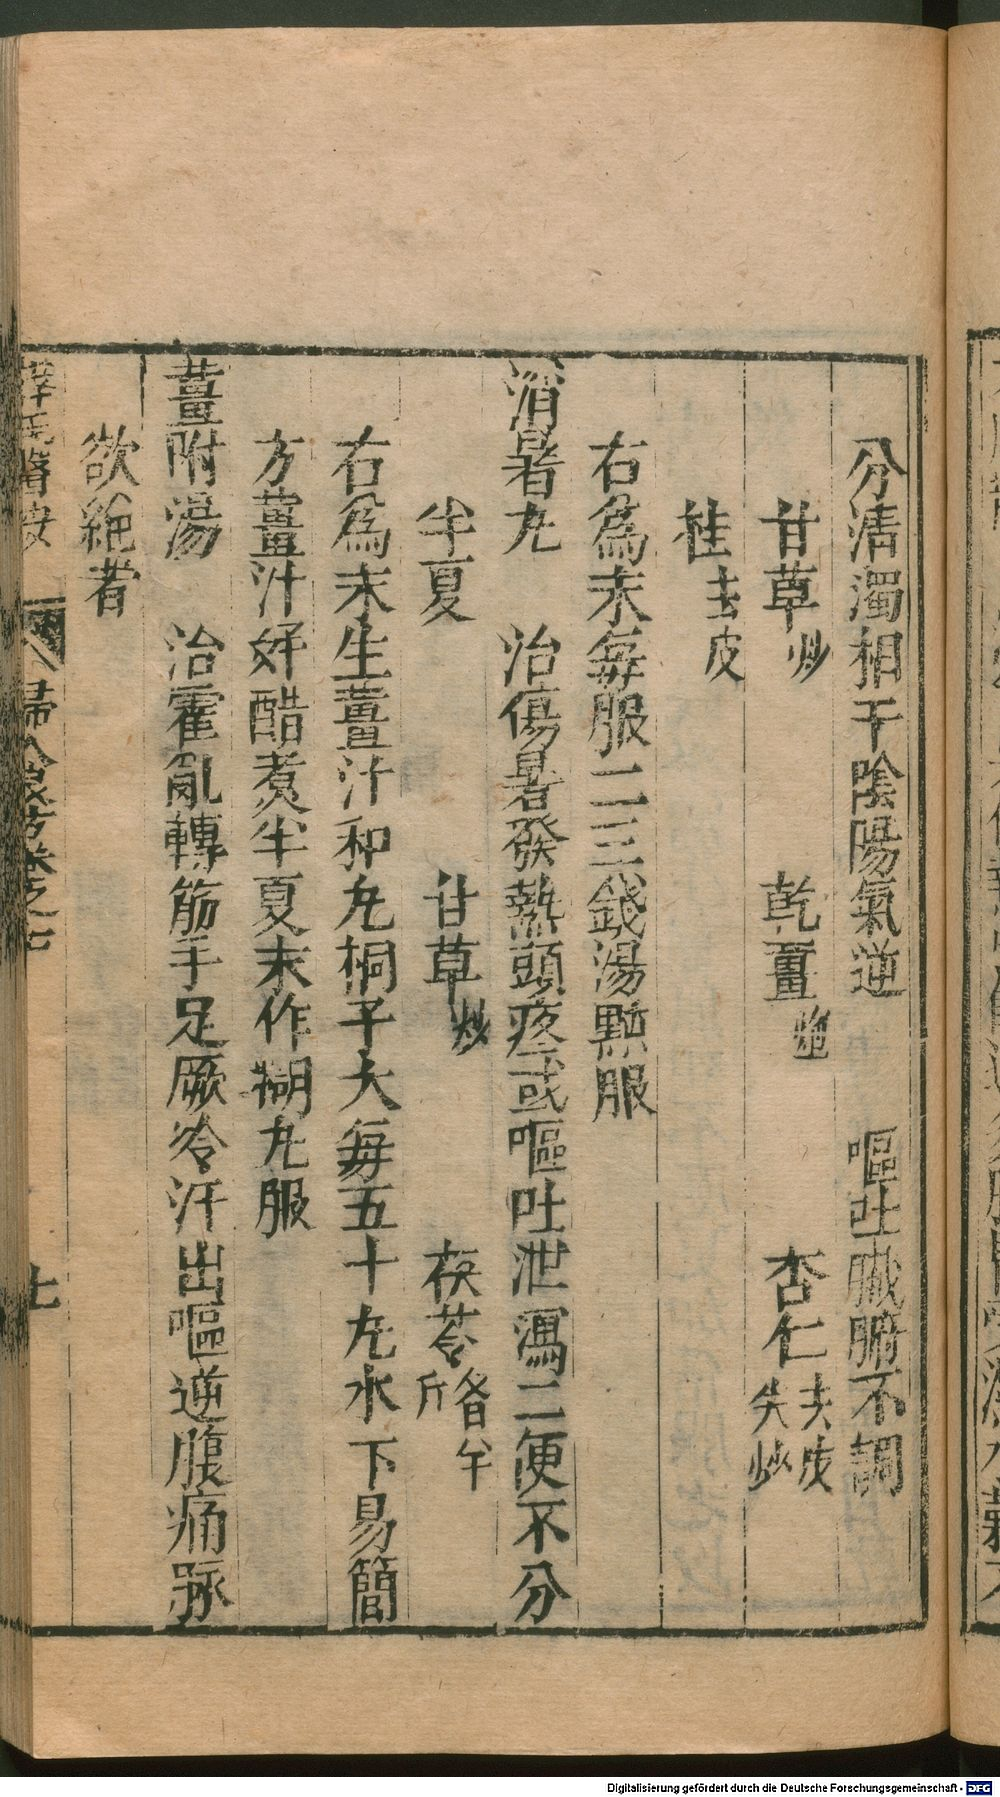 分清濁相干陰陽氣逆 嘔吐臟腑不調
甘草炒 乾薑炮 杏仁去皮尖炒
桂去皮
右爲末每服二三錢湯點服
消暑丸 治傷暑發熱頭疼或嘔吐泄瀉二便不分
半夏 甘草炒 茯苓各半斤
右爲末生薑汁和丸桐子大每五十丸水下易簡
方薑汁好醋煮半夏末作糊丸服
薑附湯 治霍亂轉筋手足厥冷汗出嘔逆腹痛脉
欲絕者
薛氏醫按 婦人良方卷之七 七
Digitalisierung gefördert durch die Deutsche Forschungsgemeinschaft - DFG